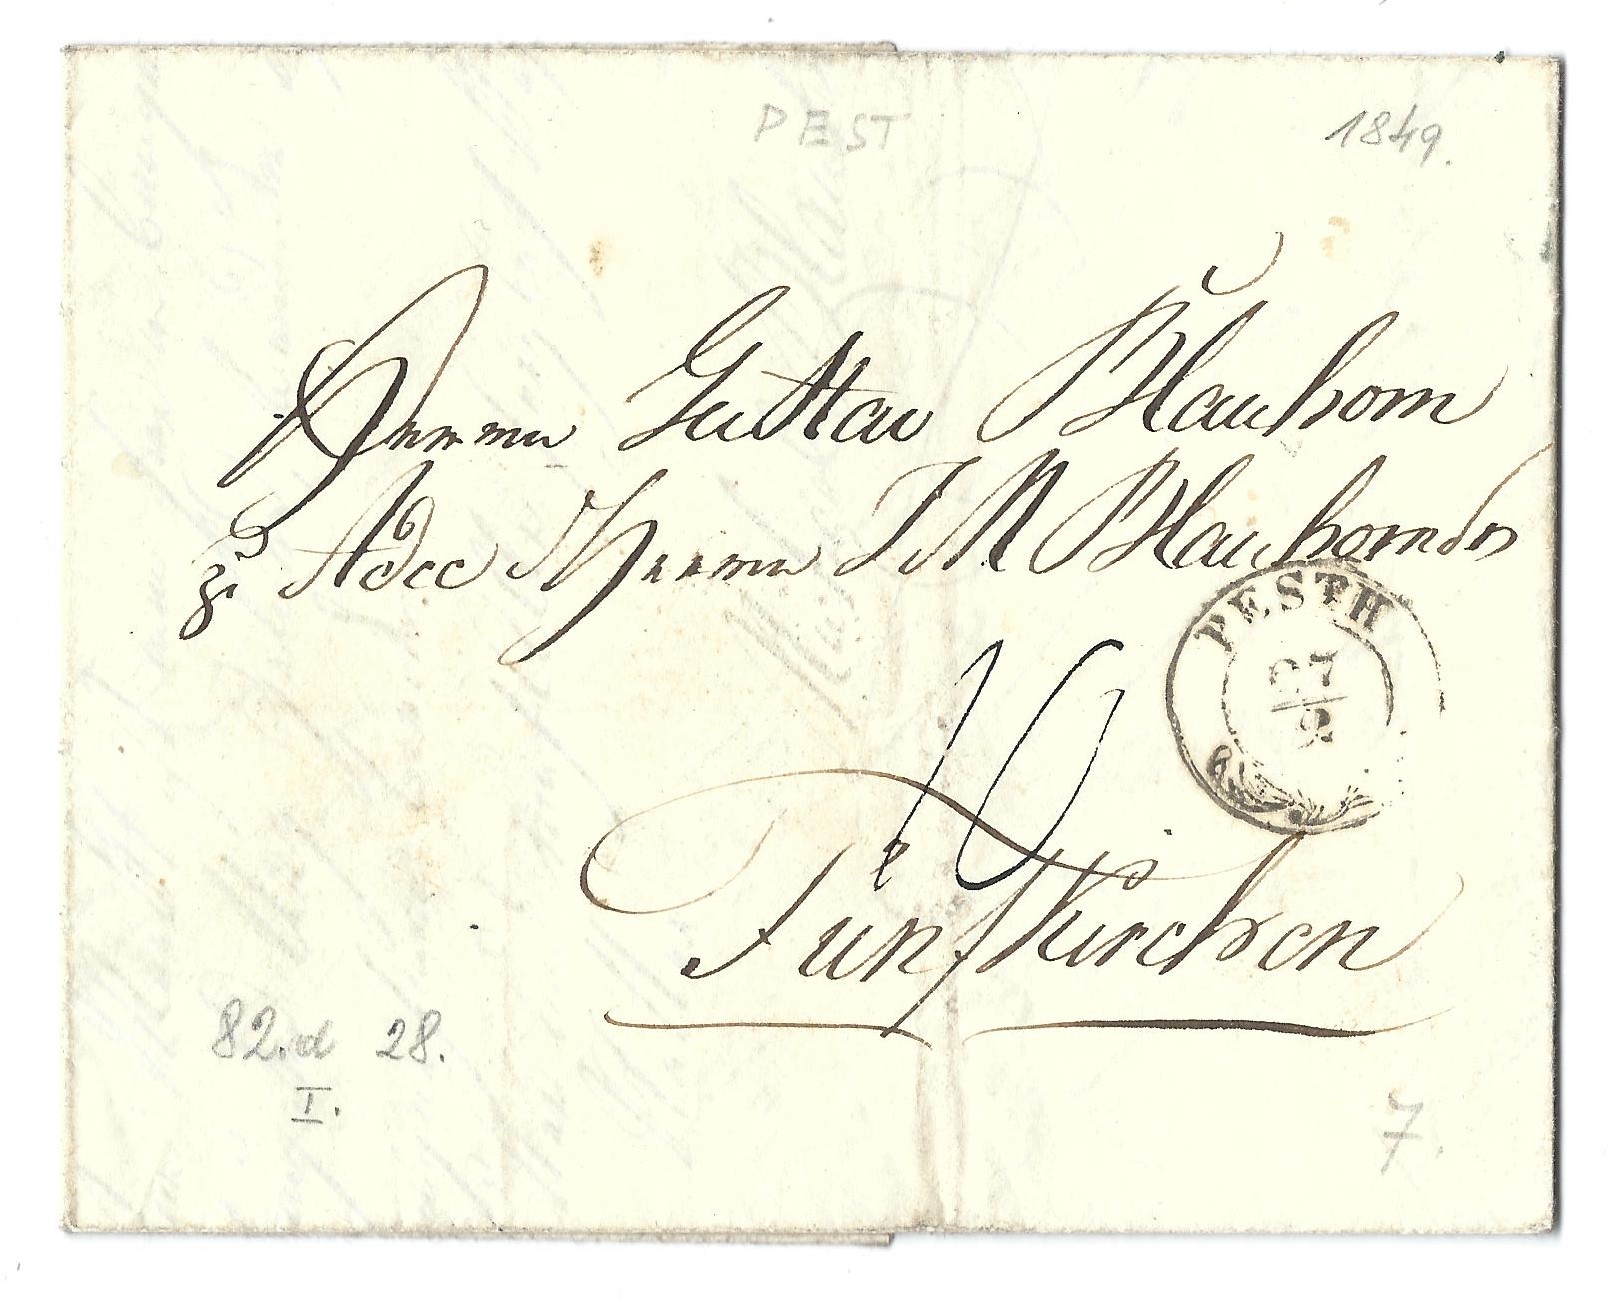 PEST 1849.
Herrn Gustav Blauhorn
zu Adcc Herrn J M Blauhorn
PESTH
27
2
10
Fünfkirchen
82.d 28.
I.
7.